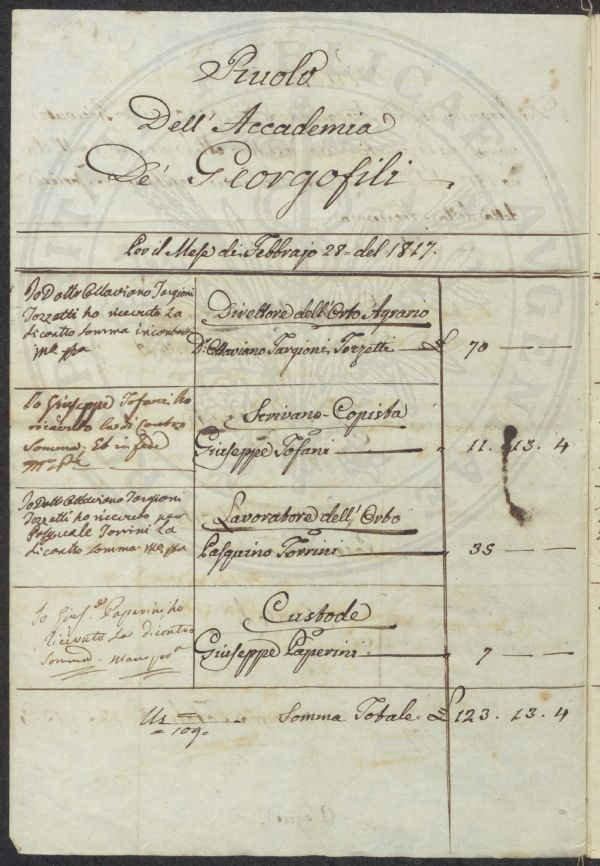 Ruolo
Dell'Accademia
De' Georgofili
Per il Mese di Febbrajo 28 - del 1817.
Io Dotto Ottaviano Targioni
Tozzetti ho ricevuto la
di contro Somma in contanti
mo ppa
Direttore dell'Orto Agrario
Dr. Ottaviano Targioni Tozzetti — £ 70 — —
Io Giuseppe Tofani ho
ricevuto la di contro
Somma, Et in fede
mo ppa
Scrivano-Copista
Giuseppe Tofani — " 11. 13. 4
Io Dotto Ottaviano Targioni
Tozzetti ho ricevuto per
Pasquale Torrini la
di contro somma. mo. ppa
Lavoratore dell'Orto
Pasquino Torrini — " 35 — —
Io Gius.e Paperini ho
ricevuto la di contro
Somma. mano pro.a
Custode
Giuseppe Paperini — " 7 — —
Somma Totale - £ 123. 13. 4
109